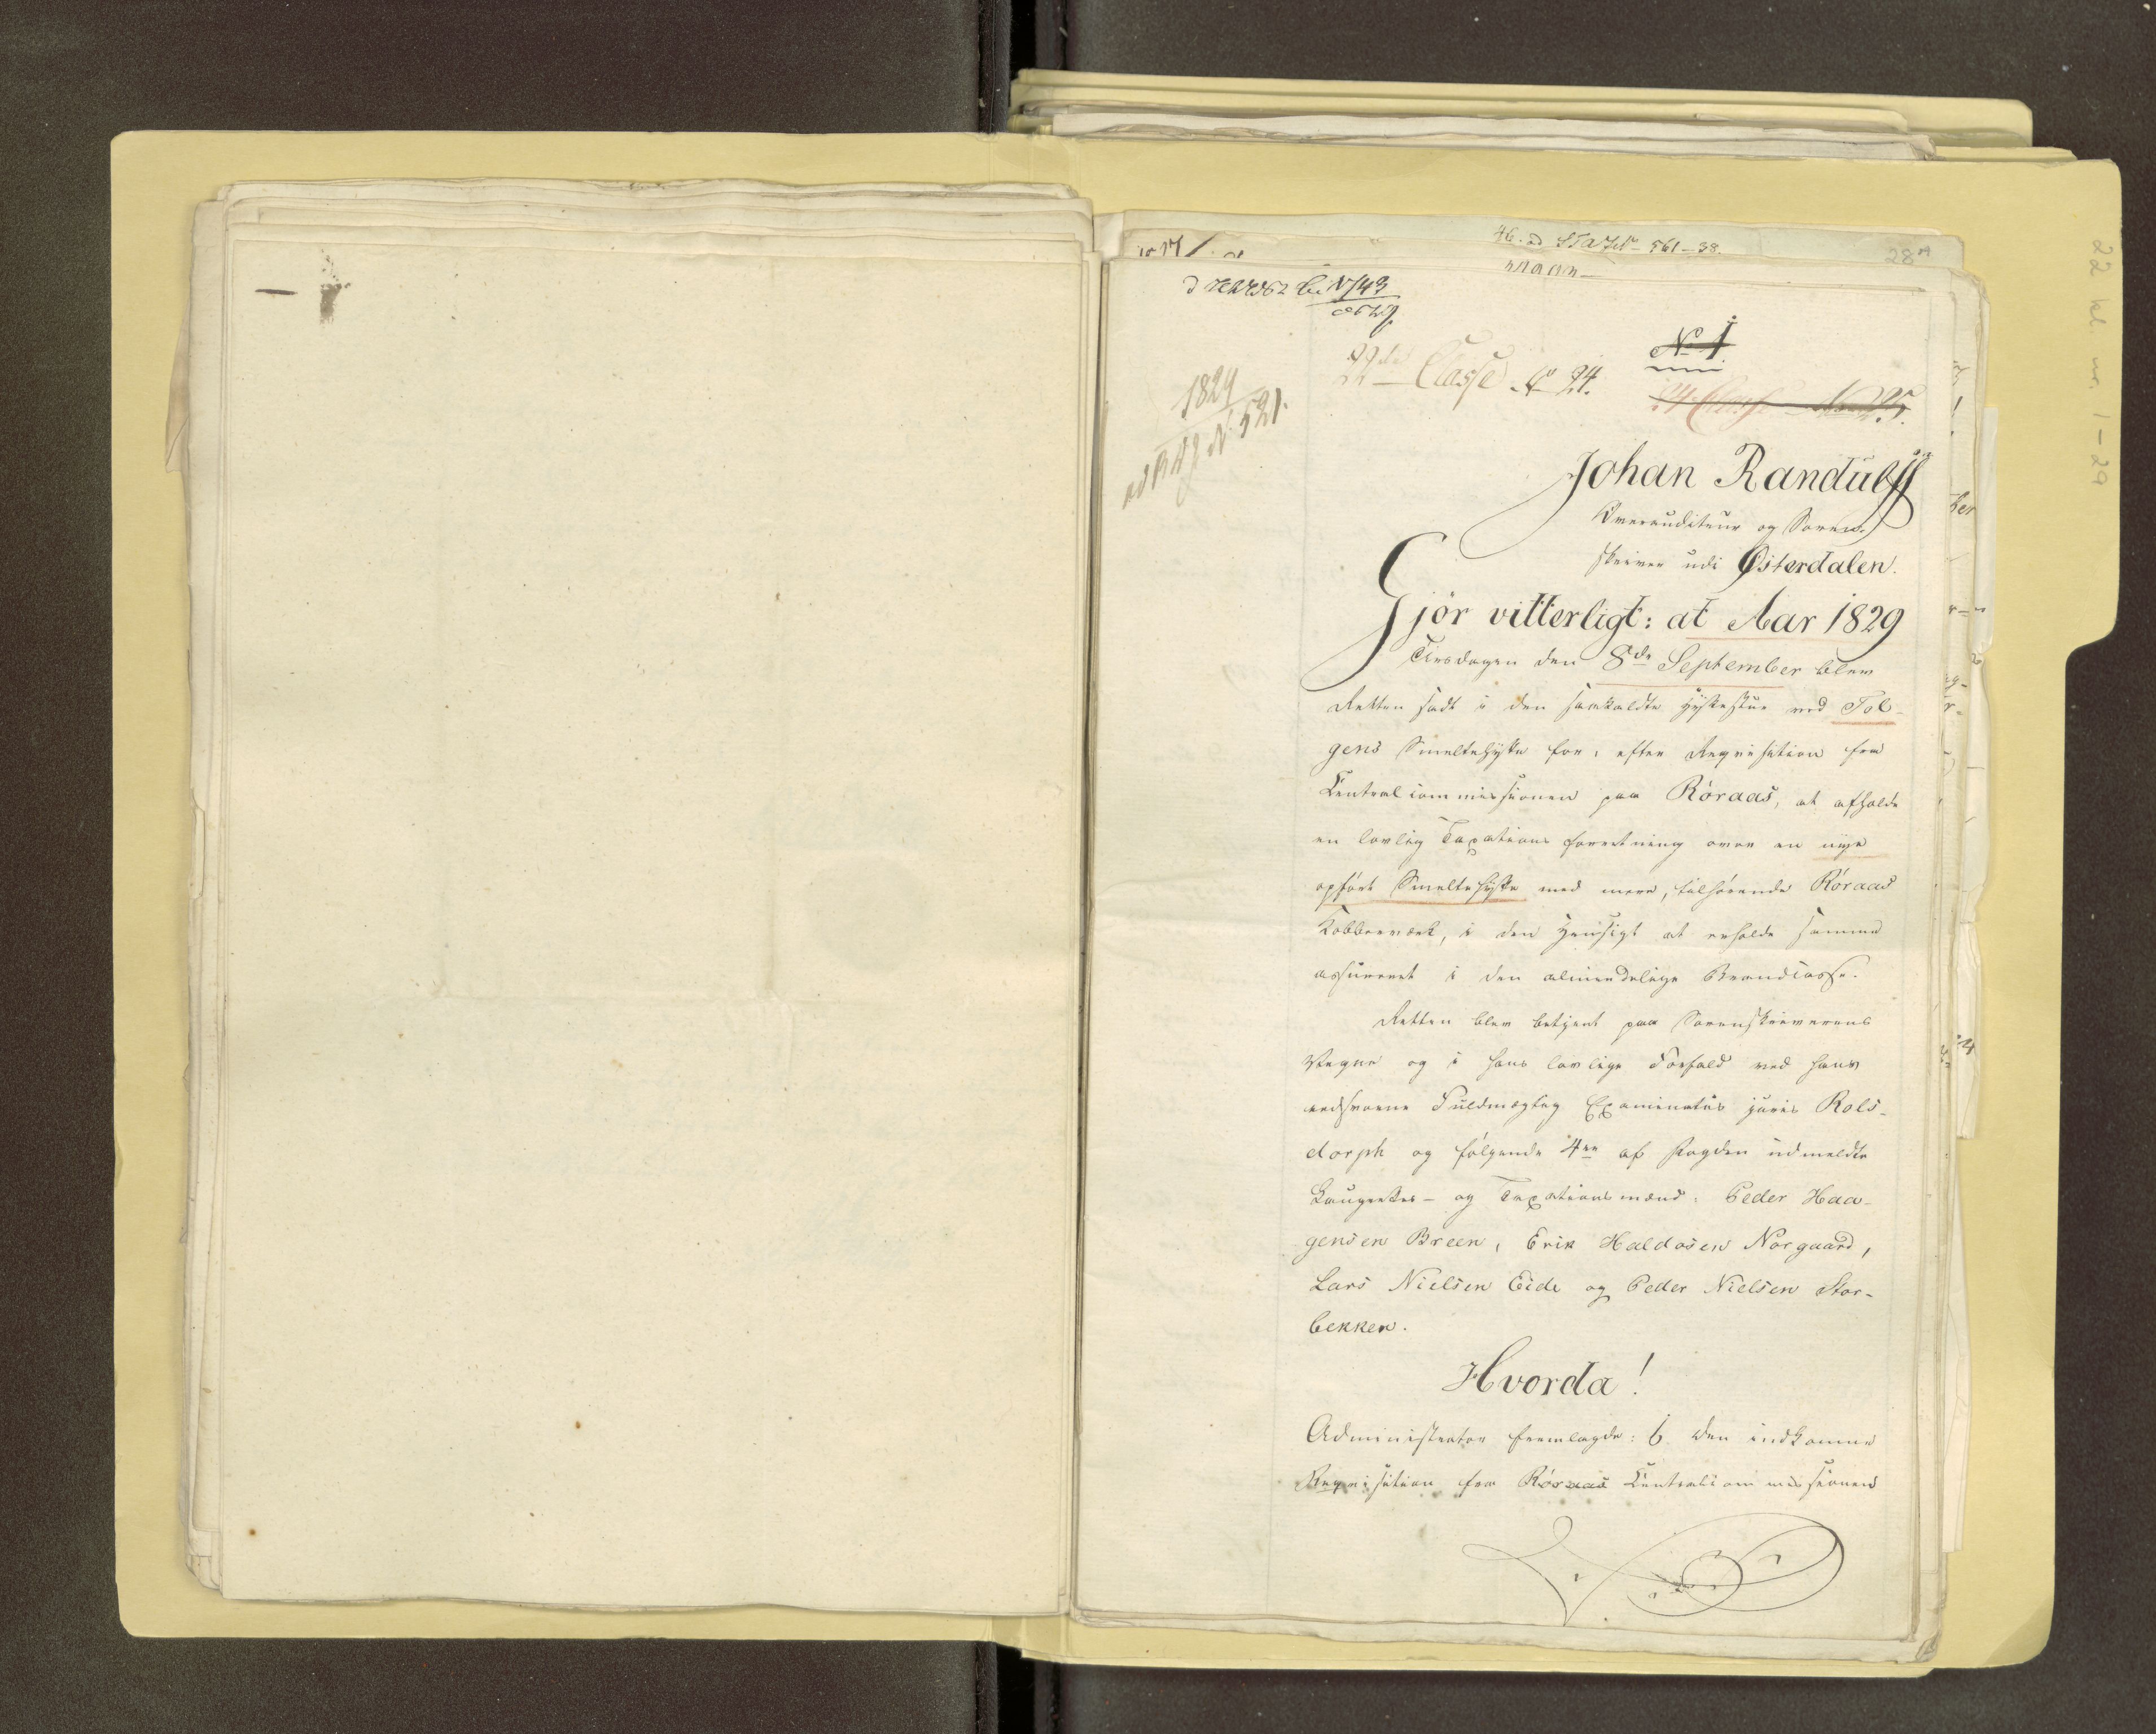 46. ad 561–38.
28A
22 kl. nr. 1–29
No 1
22de Classe No 24.
1829
No 521.
Johan Randulff
Overauditeur og Soren-
skriver udi Østerdalen.
Gjör vitterligt: at Aar 1829
Tirsdagen den 8de September blev
Retten sadt i den saakaldte Hyttestue ved Tol-
gens Smeltehytte for, efter Reqvisition fra
Centralcommissionen paa Röraas, at afholde
en lovlig Taxationsforretning over en nye
opfört Smeltehytte med mere, tilhörende Röraas
Kobberværk, i den Hensigt at erholde samme
assureret i den almindelige Brandcasse.
Retten blev betjent paa Sorenskriverens
Vegne og i hans lovlige Forfald ved hans
eedsvorne Fuldmægtig Examinatus juris Rols-
dorph og fölgende 4re af Fogden udmeldte
Laugrettes- og Taxationsmænd: Peder Haa-
gensen Breen, Erik Haldosen Norgaard,
Lars Nielsen Eide og Peder Nielsen Stor-
bekken.
Hvorda!
Administrator fremlagde: 6. den indkomne
Reqvisition fra Röraas Centralcommissionen